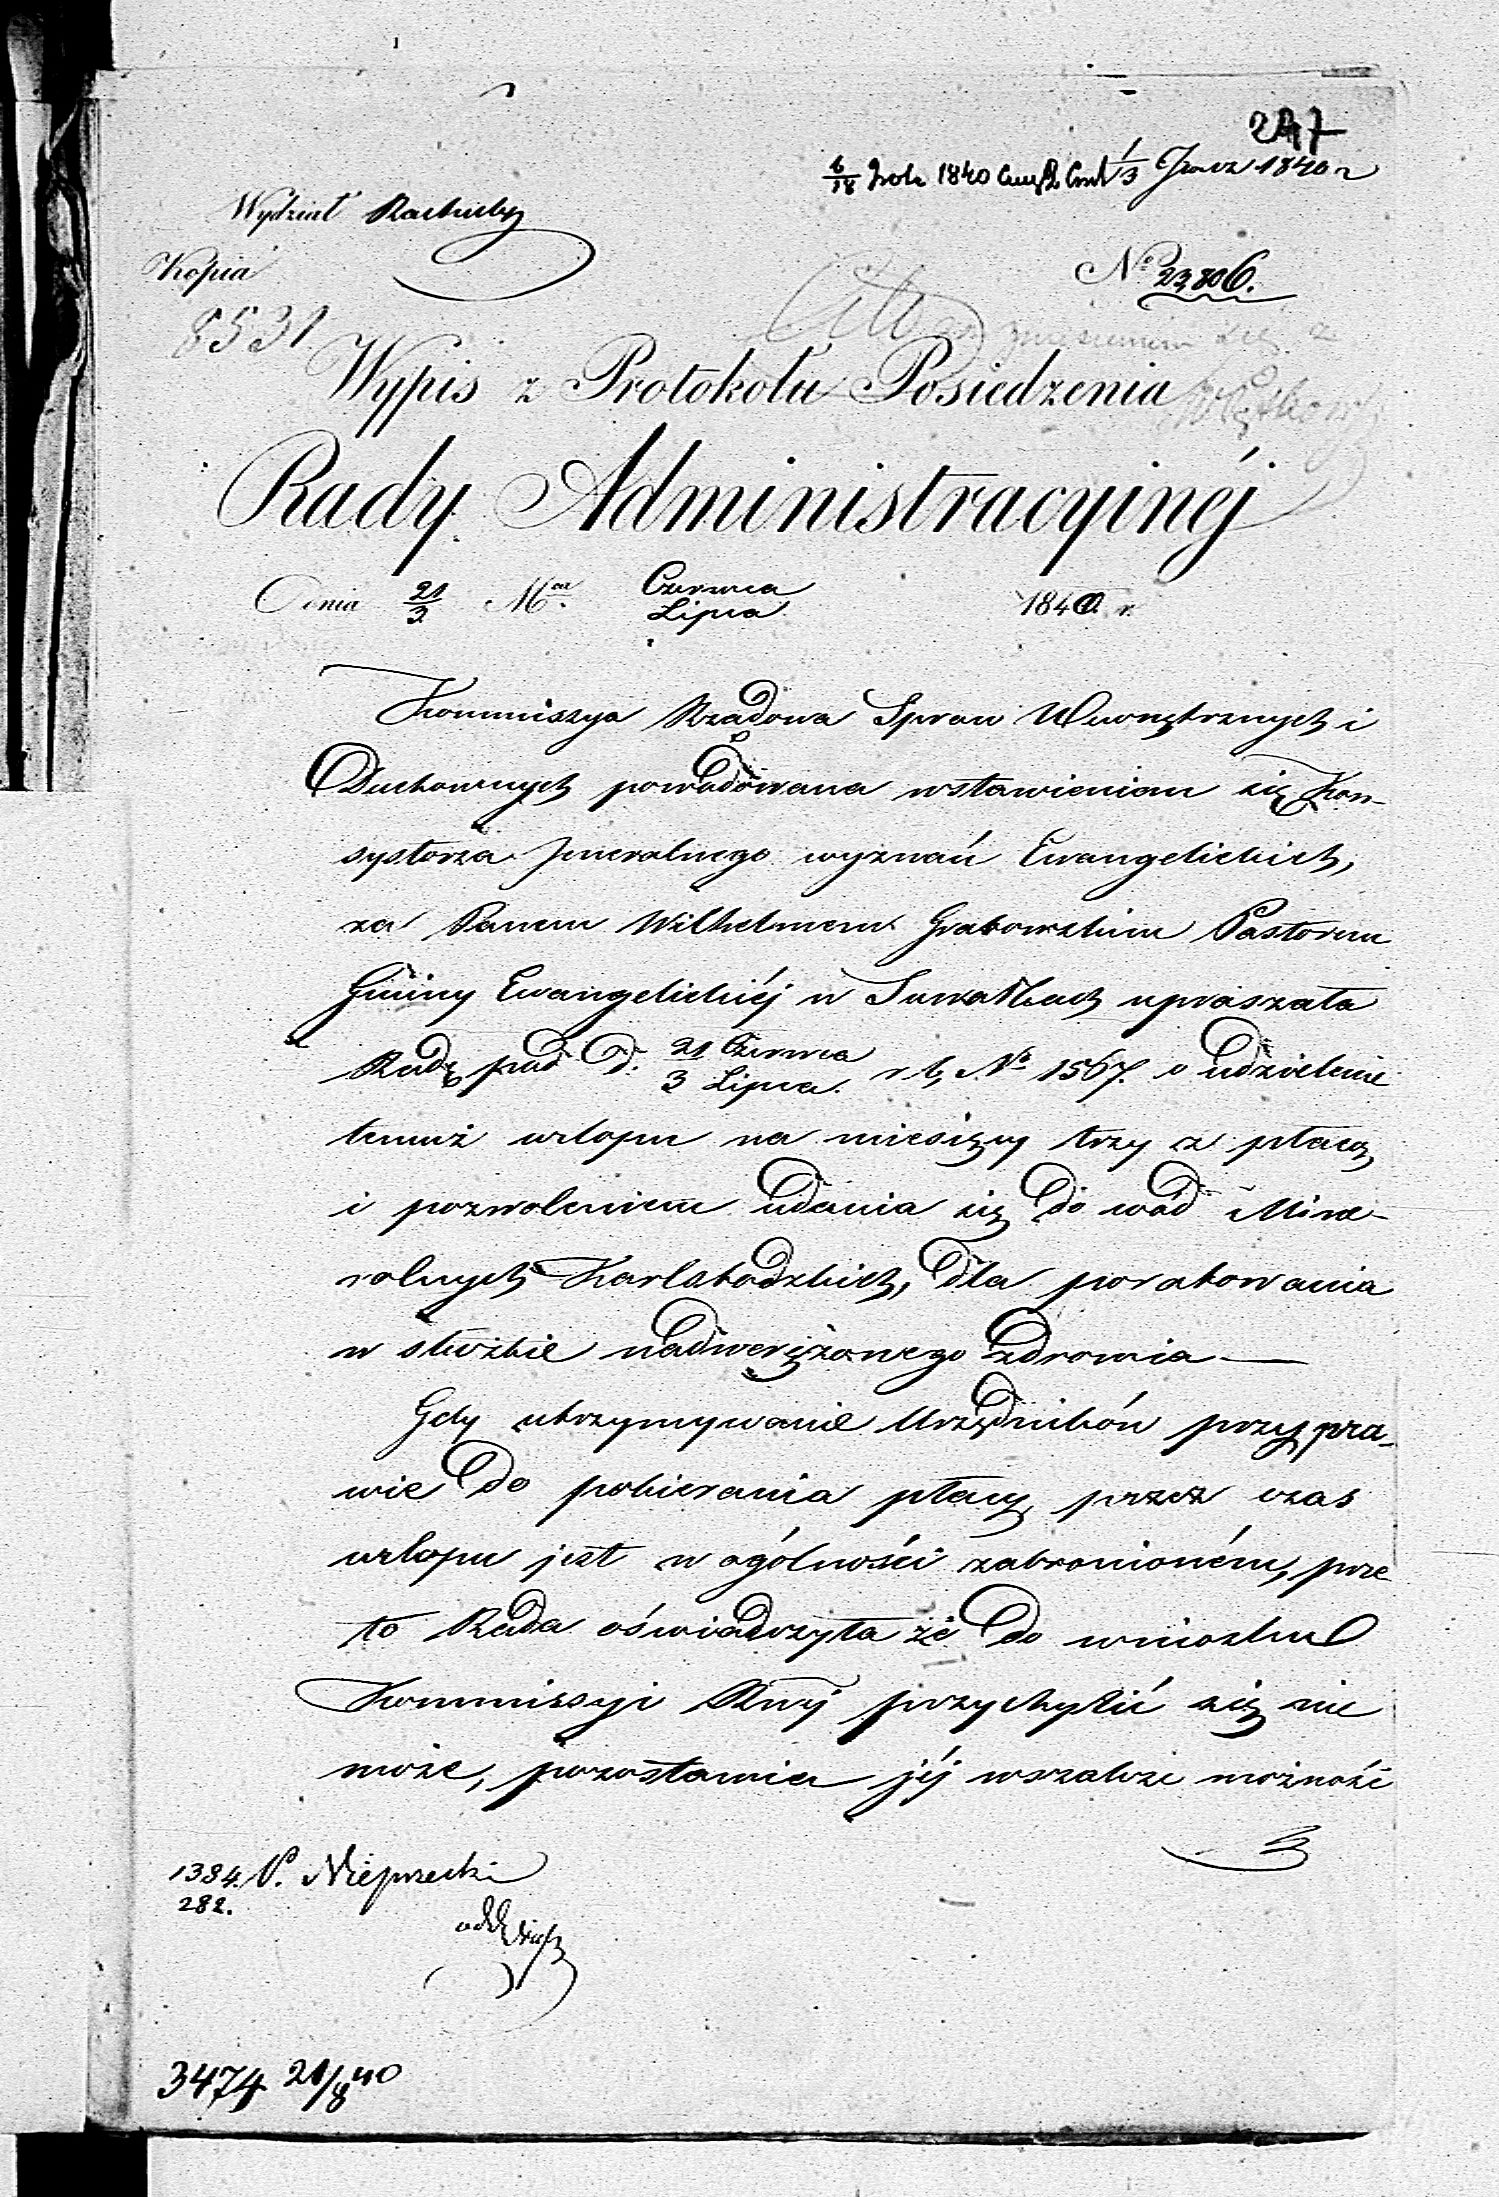 247
1840
1840 r
Wydział Rachuby
Kopia
No 23,806.
8531
Cito
Wypis z Protokołu Posiedzenia
Rady Administracyinéj
Dnia 21/3 Mca Czerwca/Lipca 1840. r.
Kommissya Rządowa Spraw Wewnętrznych i
Duchownych powodowana wstawieniem się Kon-
systorza Jneralnego wyznań Ewangelickich,
za Panem Wilhelmem Grabowskim Pastorem
Gminy Ewangelickiéj w Suwałkach upraszała
Radę pod D. 21 Czerwca/3 Lipca r b, No 1567. o udzielenie
temuż urlopu na miesięcy trzy z płacą
i pozwoleniem udania się do wód Mine-
ralnych Karlsbadzkich, dla poratowania
w służbie nadwerężonego zdrowia —
Gdy utrzymywanie Urzędników przy pra-
wie do pobierania płacy przez czas
urlopu jest w ogólności zabronioném, prze
to Rada oświadczyła że do wniosku
Kommissyi Rwéj przychylić się nie
może, pozostawia jéj wszakże możność
1384. P. Nieprzecki
282.
3474 21/8 40